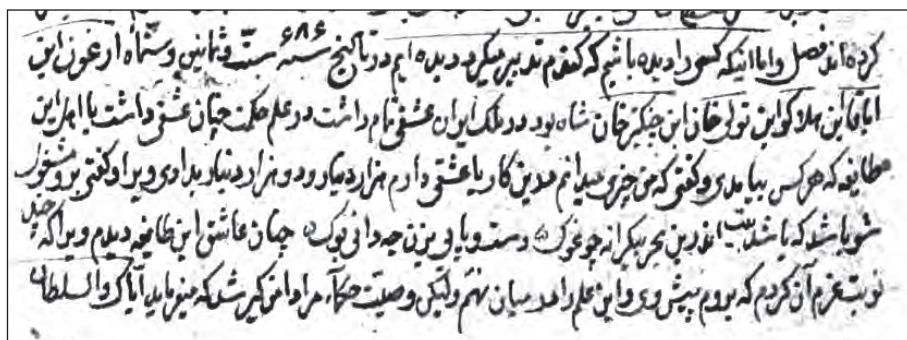 کرده‌اند فصل و اما اینکه کسی را دیده باشیم که کفتم تدبیر میکرد دیده ایم در تاریخ سنه ۶۸۶ ست و ثمانین و ستمأه ارغون ابن
اباقا ابن هلاکو ابن تولی خان ابن چنکیز خان شاه بود در ملک ایران عشقی تمام داشت در علم حکمت چنان عشقی داشت با اهل این
طایفه که هر کس بیامدی و کفتی که من چیزی میدانم در این کار یا عشقی دارم هزار دینار و دو هزار دینار بدادی ویرا و کفتی برو مشغول
شو باشد که باشد بیت اندرین بحر بیکرانه چو غوک دست و پایی بزن چه دانی بوک چنان عاشق این طایفه دیدم ویرا که چند
نوبت عزم آن کردم که بروم پیش وی و این علم را در میان نهم ولیکن وصیت حکمآء مرا دامن کیر شد که میفرماید ایاک والسلطان